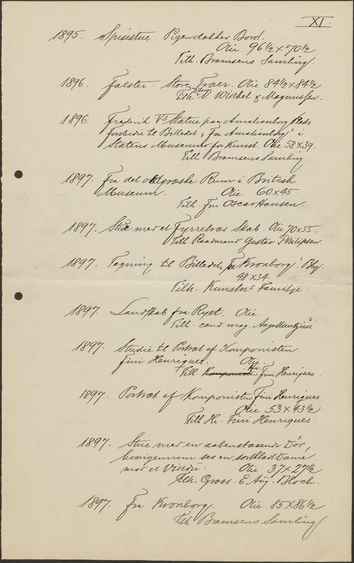 XI
1895. Spisestue Pigen dækker Bord.
Olie 96½ × 70½
Tilh Bramsens Samling.
1896. Falster Store Træer. Olie 84½ × 84½
Tilh. V. Winkel & Magnussen.
1896 Frederik Vs Statue paa Amalienborg Plads
forstudie til Billedet "fra Amalienborg" i
Statens Museum for Kunst Olie 53×39.
Tilh Bramsens Samling
1897. Fra det oldgræske Rum i British
Museum. Olie 60×45
Tilh. Fru Oscar Hansen
1897. Stue med et Fyrretræs Skab Olie 70×55.
Tilh Raadmand Gustav Philipsen
1897. Tegning til Billedet, "Fra Kronborg" Bly.
48×34.
Tilh. Kunstnr Familje
1897. Landskab fra Ryet Olie
Tilh cand mag. Aage
1897. Studie til Portræt af Komponisten
Fini Henriques. Olie.
Tilh Fini Henriques
1897. Portræt af Komponisten Fini Henriques
Olie 53×43½
Tilh Hr. Fini Henriques
1897. Stue med en aabenstaaende Dør,
hvorigennem ses en sortklædt Dame
ved et Vindue. Olie 37×27½
Tilh. Gross. E. Aug. Bloch.
1897. Fra Kronborg. Olie 85×86½
Tilh Bramsens Samling